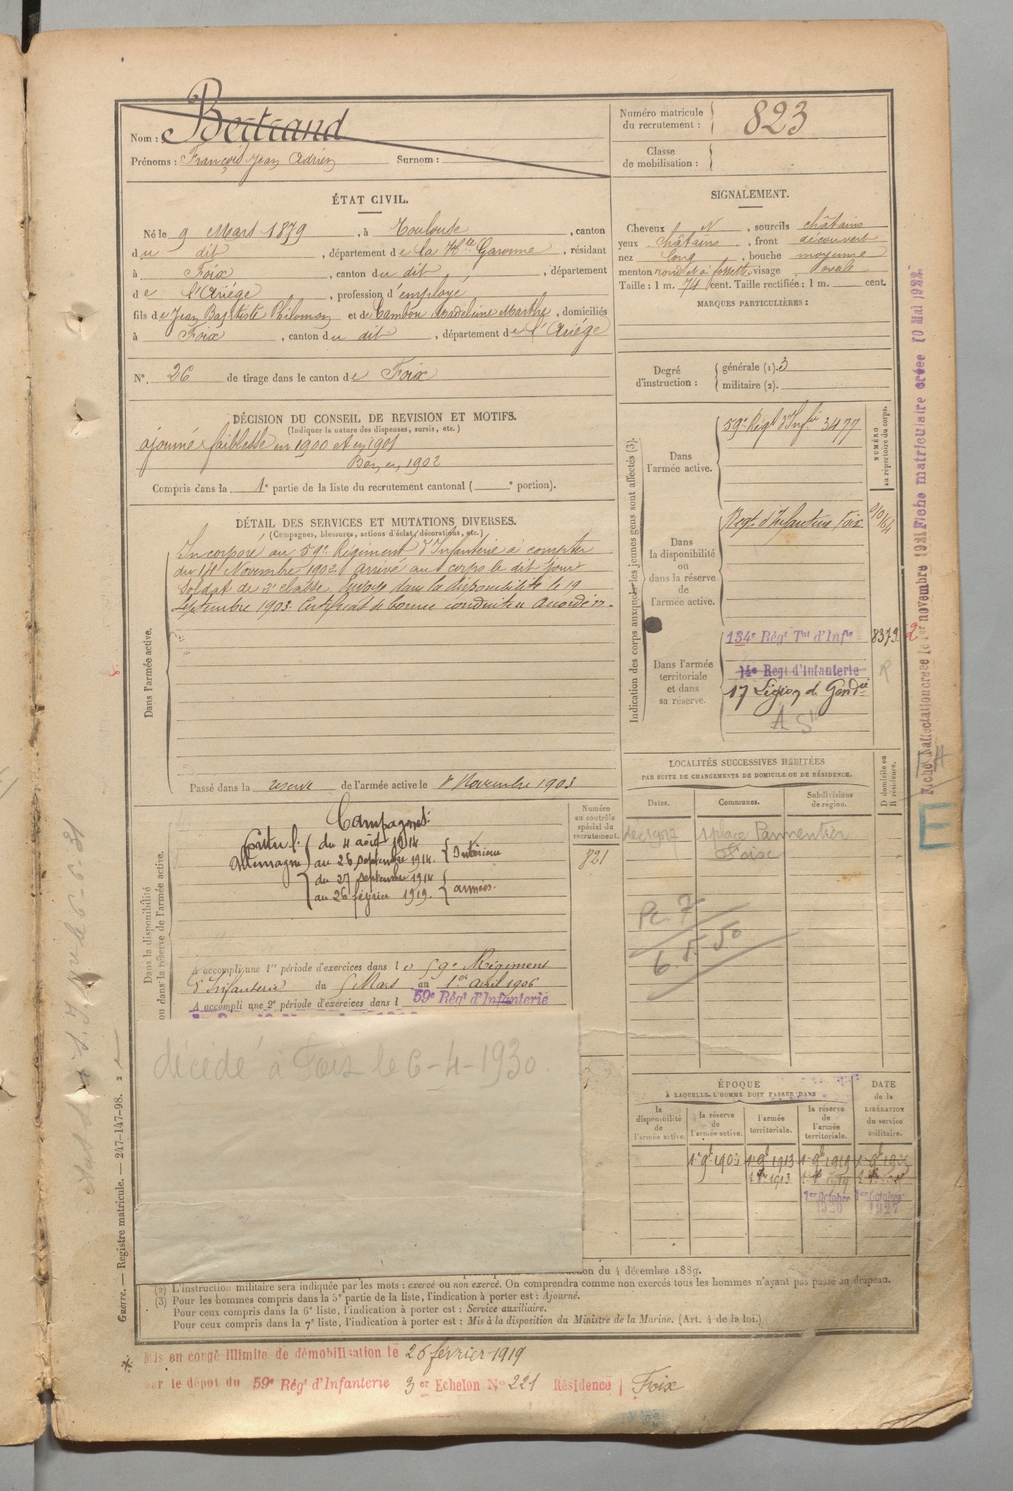 Nom : Bertrand
Prénoms : François Jean Adrien Surnom :
Numéro matricule du recrutement : 823
Classe de mobilisation :
ÉTAT CIVIL.
Né le 9 Mars 1879, à Toulouse, canton
du dit, département de la Hte Garonne, résidant
à Foix, canton du dit, département
de l'Ariége, profession d'employé
fils de Jean Baptiste Philomen et de Cambon Madeleine Marthe, domiciliés
à Foix, canton du dit, département de l'Ariége
N° 26 de tirage dans le canton de Foix
SIGNALEMENT.
Cheveux N, sourcils châtains
yeux châtains, front découvert
nez long, bouche moyenne
menton rond et à fossette, visage ovale
Taille : 1 m. 74 cent. Taille rectifiée : 1 m. cent.
MARQUES PARTICULIÈRES :
Degré d'instruction : générale (1). 3
militaire (2).
DÉCISION DU CONSEIL DE REVISION ET MOTIFS.
(Indiquer la nature des dispenses, sursis, etc.)
ajourné faiblesse en 1900 et en 1901
Bon en 1902
Compris dans la 1e partie de la liste du recrutement cantonal ( e portion).
DÉTAIL DES SERVICES ET MUTATIONS DIVERSES.
(Campagnes, blessures, actions d'éclat, décorations, etc.)
Dans l'armée active.
Incorporé au 59e Régiment d'Infanterie à compter
du Novembre 1902. arrivé au corps le dit jour
Soldat de 2e classe. Envoyé dans la disponibilité le 19
Septembre 1903. Certificat de bonne conduite accordé
Passé dans la réserve de l'armée active le 1 Novembre 1903
Indication des corps auxquels les jeunes gens sont affectés (3).
NUMÉRO au répertoire du corps.
Dans l'armée active.
59e Régt d'Infie 3477
Dans la disponibilité ou dans la réserve de l'armée active.
Régt d'Infanterie Foix
Dans l'armée territoriale et dans sa réserve.
134e Régt Tal d'Infie 8373
14e Regt d'Infanterie R
17 Légion de Gendie
LOCALITÉS SUCCESSIVES HABITÉES
PAR SUITE DE CHANGEMENTS DE DOMICILE OU DE RÉSIDENCE.
D domicile ou R résidence.
Dates. Communes. Subdivisions de région.
1 place Parmentier
Foix
6.5.50
E
Dans la disponibilité ou dans la réserve de l'armée active.
Numéro au contrôle spécial du recrutement.
821
Campagnes:
Contre l'Allemagne
du 4 août 1914
au 26 septembre 1914. Intérieur
du 27 septembre 1914
au 26 février 1919. armées.
A accompli une 1re période d'exercices dans le 59e Régiment
d'Infanterie du 5 Mars au 1er Avril 1906
A accompli une 2e période d'exercices dans l 59e Régt d'Infanterie
décédé à Foix le 6-4-1930.
ÉPOQUE
À LAQUELLE L'HOMME DOIT PASSER DANS
DATE de la LIBÉRATION du service militaire.
la disponibilité de l'armée active.
la réserve de l'armée active.
l'armée territoriale.
la réserve de l'armée territoriale.
1e 9bre 1903 1e 9bre 1913 1e 9bre 1919
1er Octobre 1er Octobre
1927
du 4 décembre 1889.
(2) L'instruction militaire sera indiquée par les mots : exercé ou non exercé. On comprendra comme non exercés tous les hommes n'ayant pas passé au drapeau.
(3) Pour les hommes compris dans la 5e partie de la liste, l'indication à porter est : Ajourné.
Pour ceux compris dans la 6e liste, l'indication à porter est : Service auxiliaire.
Pour ceux compris dans la 7e liste, l'indication à porter est : Mis à la disposition du Ministre de la Marine. (Art. 4 de la loi.)
Guerre. — Registre matricule. — 247-147-98.
Mis en congé illimité de démobilisation le 26 février 1919
sur le dépôt du 59e Régt d'Infanterie 3er Echelon No 221 Résidence Foix
Fiche matriculaire créée 10 Mai 1922.
Fiche d'affectation créée le 1er novembre 1921